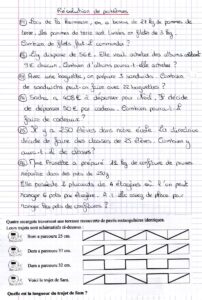 Résolution de problèmes
① Lors de la kermesse, on a besoin de 21 kg de pommes de
terre. Les pommes de terre sont livrées en filets de 3 kg.
Combien de filets faut-il commander ?
② dispose de 56 €. Elle veut acheter des albums coûtant
7 € chacun. Combien d'albums pourra-t-elle acheter ?
③ Avec une baguette, on prépare 3 sandwichs. Combien
de sandwichs peut-on faire avec 22 baguettes ?
④ Sacha a 468 € à dépenser pour Noël. Il décide
de dépenser 50 € par cadeau. Combien pourra-t-il
faire de cadeaux ?
⑤ Il y a 250 élèves dans notre école. La directrice
décide de faire des classes de 25 élèves. Combien y
aura-t-il de classes ?
⑥ Mme Prunette a préparé 12 kg de confiture de prunes
répartie dans des pots de 250 g.
Elle possède 2 placards de 4 étagères où l'on peut
ranger 6 pots par étagère. A-t-elle assez de place pour
ranger les pots de confiture ?
Quatre escargots traversent une terrasse recouverte de pavés rectangulaires identiques.
Leurs trajets sont schématisés ci-dessous
Sam a parcouru 25 cm.
Dam a parcouru 37 cm.
Tam a parcouru 38 cm.
Voici le trajet de Sam ?
Quelle est la longueur du trajet de Sam ?